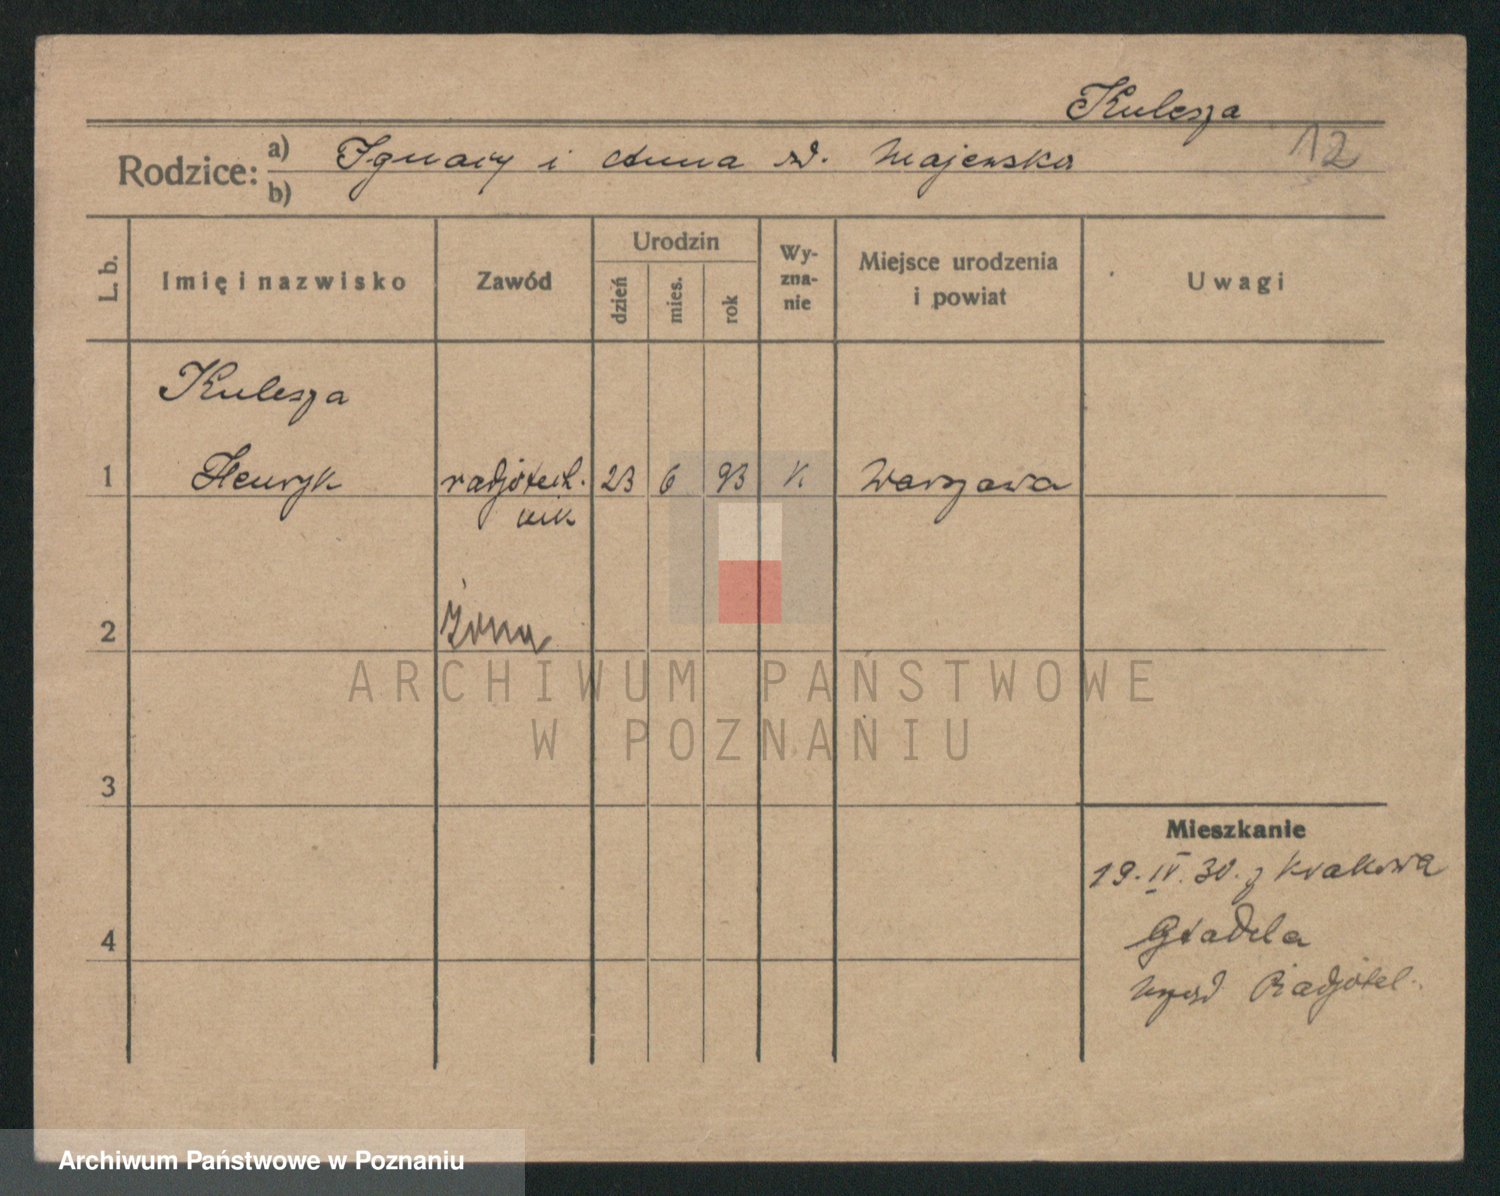 Kulesza
12
Rodzice: a) Ignacy i Anna zd. Majewska
b)
L. b. Imię i nazwisko Zawód Urodzin dzień mies. rok Wyznanie Miejsce urodzenia i powiat Uwagi
Kulesza
1 Henryk radjotech. 23 6 93 K Warszawa
nik
2 Żona
3
Mieszkanie
19. IV. 30. z Krakowa
4 Cytadela
Urząd Radjotel.
ARCHIWUM PAŃSTWOWE
W POZNANIU
Archiwum Państwowe w Poznaniu